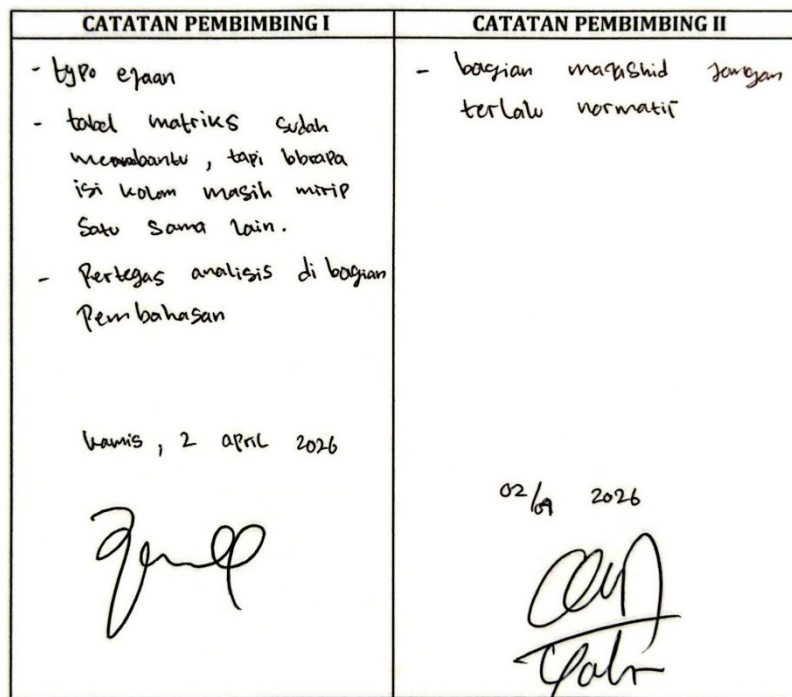 CATATAN PEMBIMBING I
- typo ejaan
- tabel matriks sudah
membantu, tapi bbrapa
isi kolom masih mirip
satu sama lain.
- Pertegas analisis di bagian
Pembahasan
kamis, 2 april 2026
CATATAN PEMBIMBING II
- bagian maqashid jangan
terlalu normatif
02/04 2026